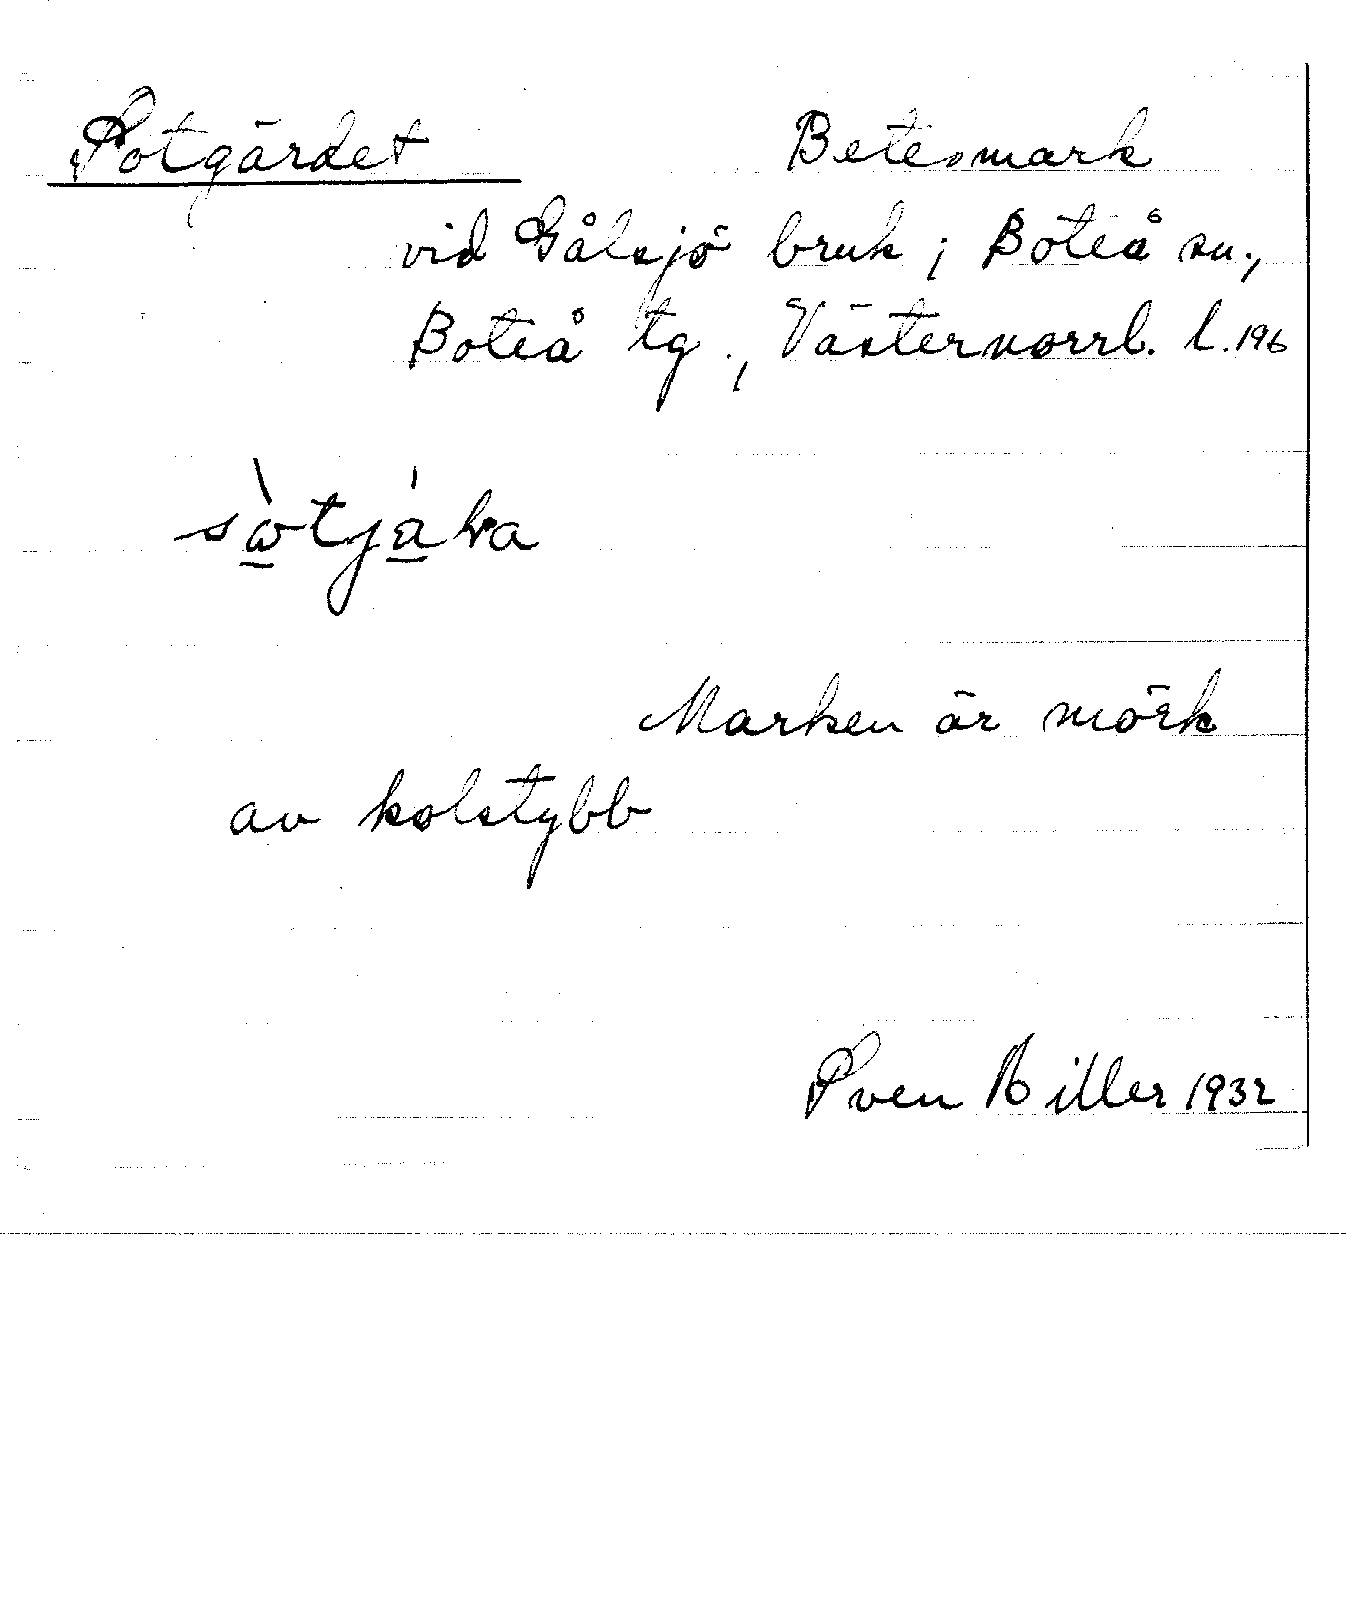 Sotgärdet Betesmark
vid Gålsjö bruk; Boteå sn.,
Boteå tg., Västernorrl. l. 196
Marken är mörk
av kolstybb
Sven Hiller 1932